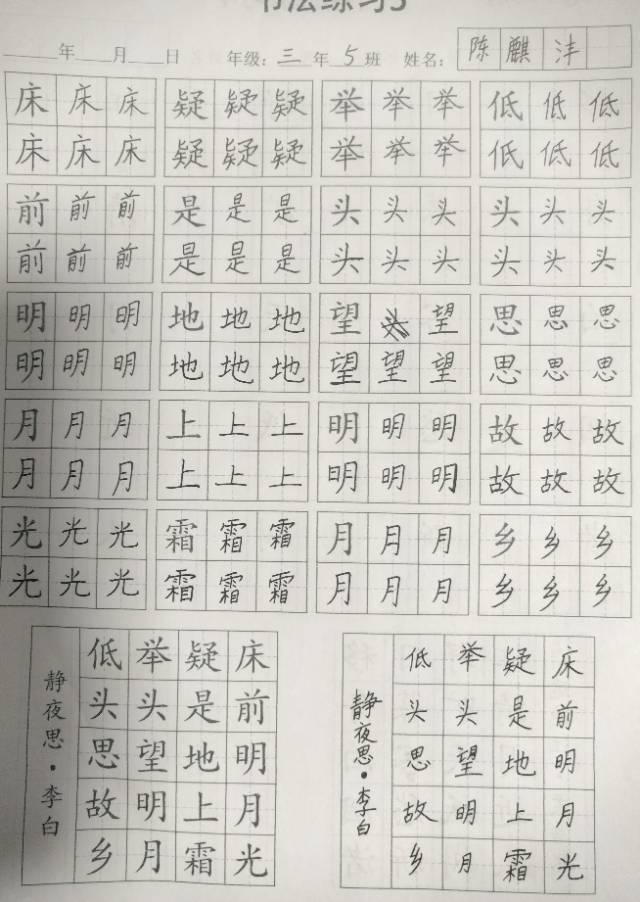 书法练习3
年 月 日 年级：三年5班 姓名：陈麒沣
床床床 疑疑疑 举举举 低低低
床床床 疑疑疑 举举举 低低低
前前前 是是是 头头头 头头头
前前前 是是是 头头头 头头头
明明明 地地地 望头望 思思思
明明明 地地地 望望望 思思思
月月月 上上上 明明明 故故故
月月月 上上上 明明明 故故故
光光光 霜霜霜 月月月 乡乡乡
光光光 霜霜霜 月月月 乡乡乡
床前明月光
疑是地上霜
举头望明月
低头思故乡
静夜思·李白
床前明月光
疑是地上霜
举头望明月
低头思故乡
静夜思·李白